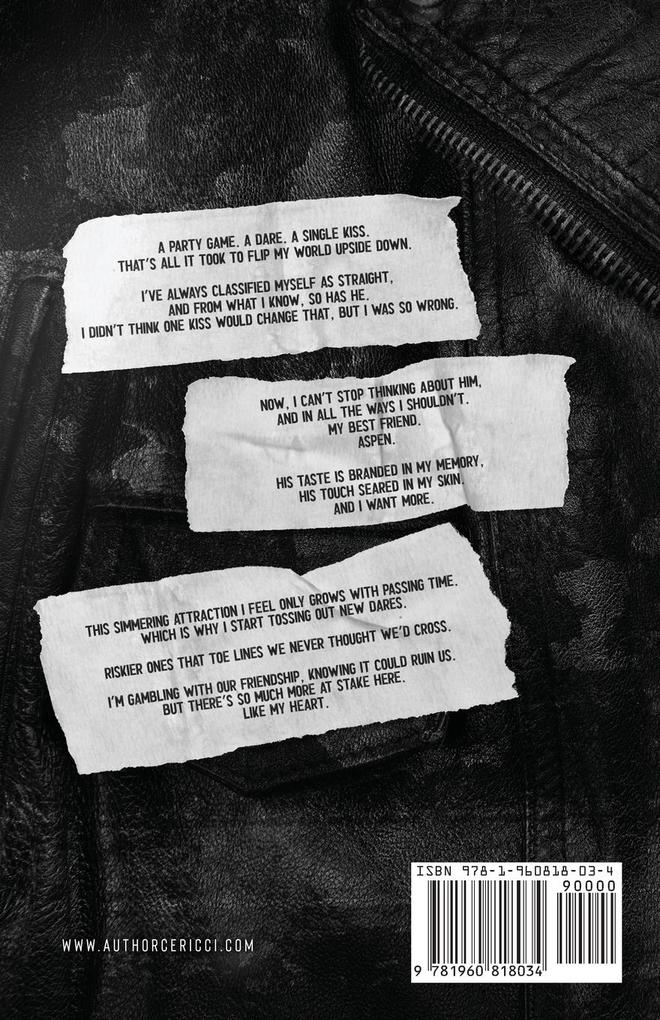 A PARTY GAME. A DARE. A SINGLE KISS.
THAT'S ALL IT TOOK TO FLIP MY WORLD UPSIDE DOWN.
I'VE ALWAYS CLASSIFIED MYSELF AS STRAIGHT,
AND FROM WHAT I KNOW, SO HAS HE.
I DIDN'T THINK ONE KISS WOULD CHANGE THAT, BUT I WAS SO WRONG.
NOW, I CAN'T STOP THINKING ABOUT HIM,
AND IN ALL THE WAYS I SHOULDN'T.
MY BEST FRIEND.
ASPEN.
HIS TASTE IS BRANDED IN MY MEMORY,
HIS TOUCH SEARED IN MY SKIN.
AND I WANT MORE.
THIS SIMMERING ATTRACTION I FEEL ONLY GROWS WITH PASSING TIME.
WHICH IS WHY I START TOSSING OUT NEW DARES.
RISKIER ONES THAT TOE LINES WE NEVER THOUGHT WE'D CROSS.
I'M GAMBLING WITH OUR FRIENDSHIP, KNOWING IT COULD RUIN US.
BUT THERE'S SO MUCH MORE AT STAKE HERE.
LIKE MY HEART.
ISBN 978-1-960818-03-4
90000
9 781960 818034
WWW.AUTHORCERICCI.COM